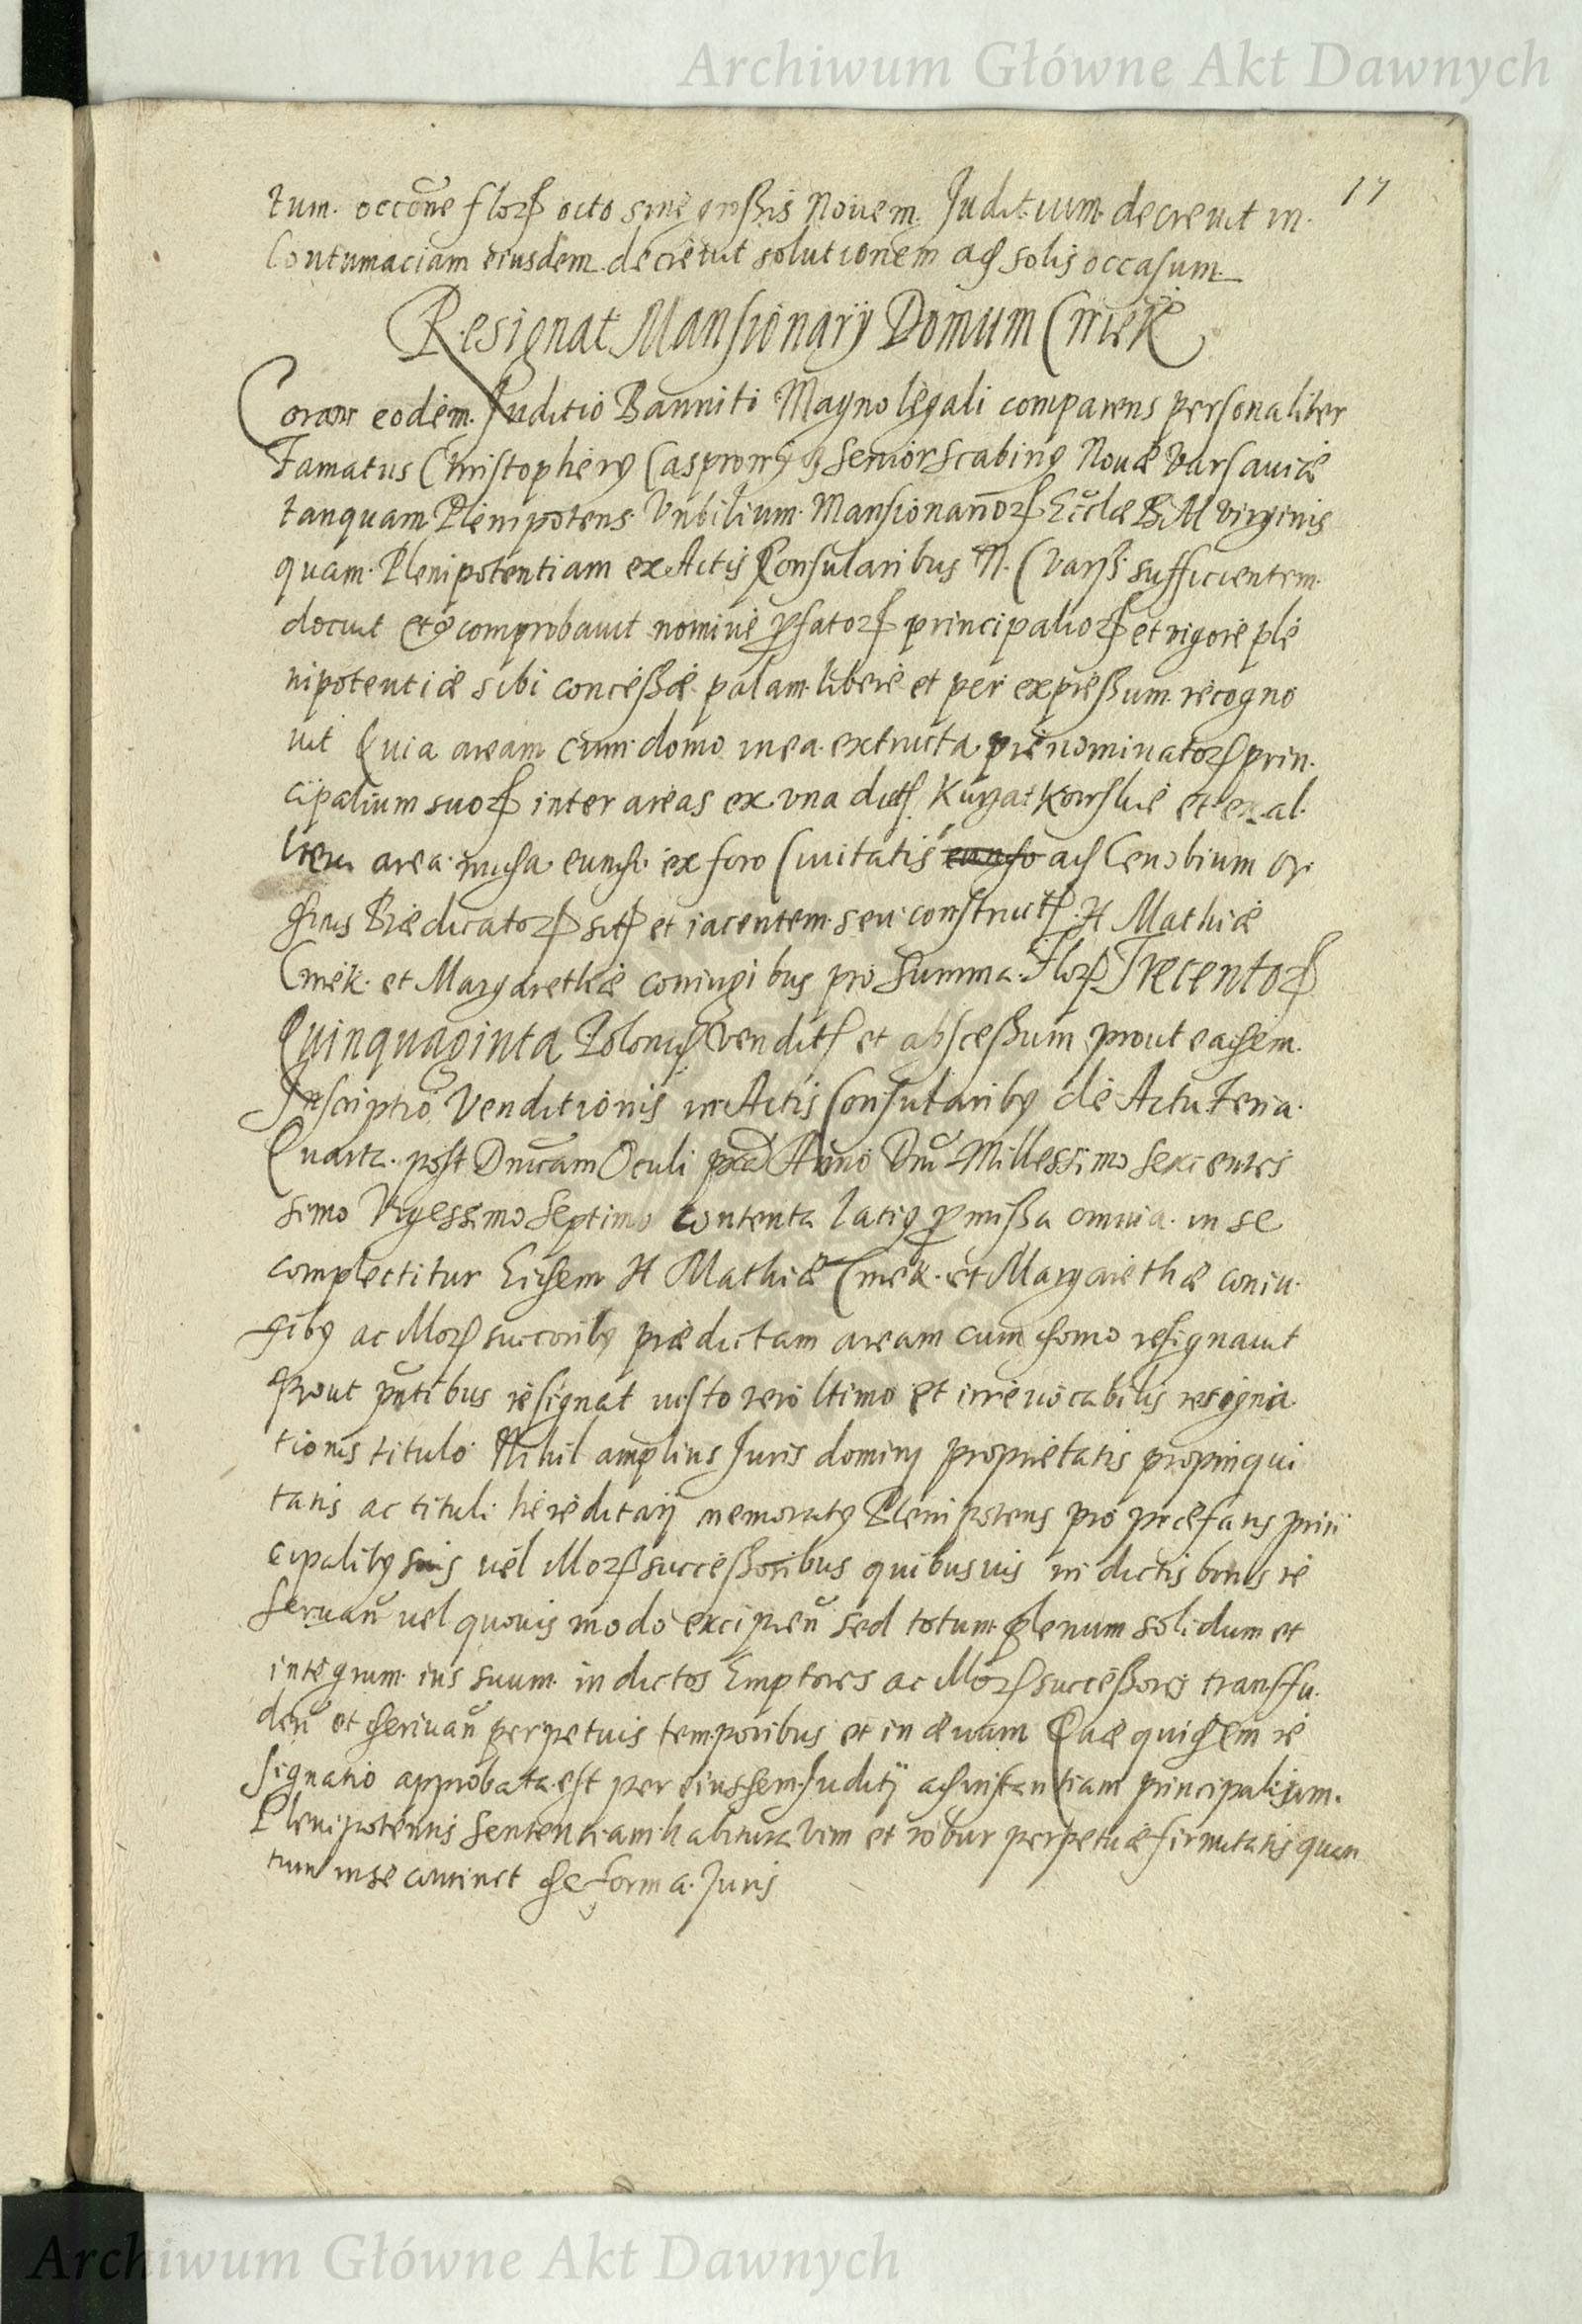 Archiwum Główne Akt Dawnych
17
tum. occõne floꝝ octo sine grossis Nouem. Juditium decreuit in.
Contumaciam eiusdem decreuit solutionem ad solis occasum.
Resignat Mansionarÿ Domum Cmėk
Coram eodem Juditio Bannito Magno legali comparens personaliter
Famatus Christopherꝯ senior scabinꝯ Nouæ Varsauiæ
tanquam Plenipotens Mansionarioꝝ Eccłæ B. M virginis
quam Plenipotentiam ex Actis Consularibus N. C Vars. sufficientem.
docuit et comprobauit nomine pfatoꝝ principalioꝝ et vigore ple
nipotentiæ sibi concessæ palam libere et per expressum recogno
uit Quia aream cum domo in ea extructa prenominatoꝝ prin.
cipalium suoꝝ inter areas ex vna et ex al.
area eundo ex foro Ciuitatis ad Cenobium Or.
dinis Prædicatoꝝ sit et iacentem seu construct H Mathiæ
Cmek et Margarethæ coniugibus pro summa Floꝝ Trecentoꝝ
Quinquaginta Polonic vendit et abscessum prout eadem
Inscriptio Venditionis in Actis Consularibꝯ de Actu Feria
Quarta post Dnicam Oculi Anno Dni Millessimo sexcentes
simo Vigessimo Septimo contenta latiꝯ pmissa omnia in se
complectitur Eidem H Mathiæ Cmek et Margarethæ coniu.
gibꝯ ac illoꝝ succoribꝯ prædictam aream cum domo resignauit
Prout pñtibus resignat iusto vero ltimo et irreuocabilis resigna
tionis titulo Nihil amplius Juris dominij proprietatis propinqui
tatis ac tituli hereditarij memoratꝯ Plenipotens pro præfatis prin
cipalibꝯ suis uel illoꝝ successoribus quibusuis in dictis bonis re
seruañ vel quouis modo excipieñ sed totum plenum solidum et
integrum ius suum in dictos Emptores ac illoꝝ successores transfu.
deñ et deriuañ perpetuis temporibus et in æuum Quæ quidem re
signatio approbata est per eiusdem Juditij ad instantiam principalium.
Plenipotentis sententiam habitura vim et robur perpetuæ firmitatis quan
tum in se continet de forma Juris
Archiwum Główne Akt Dawnych